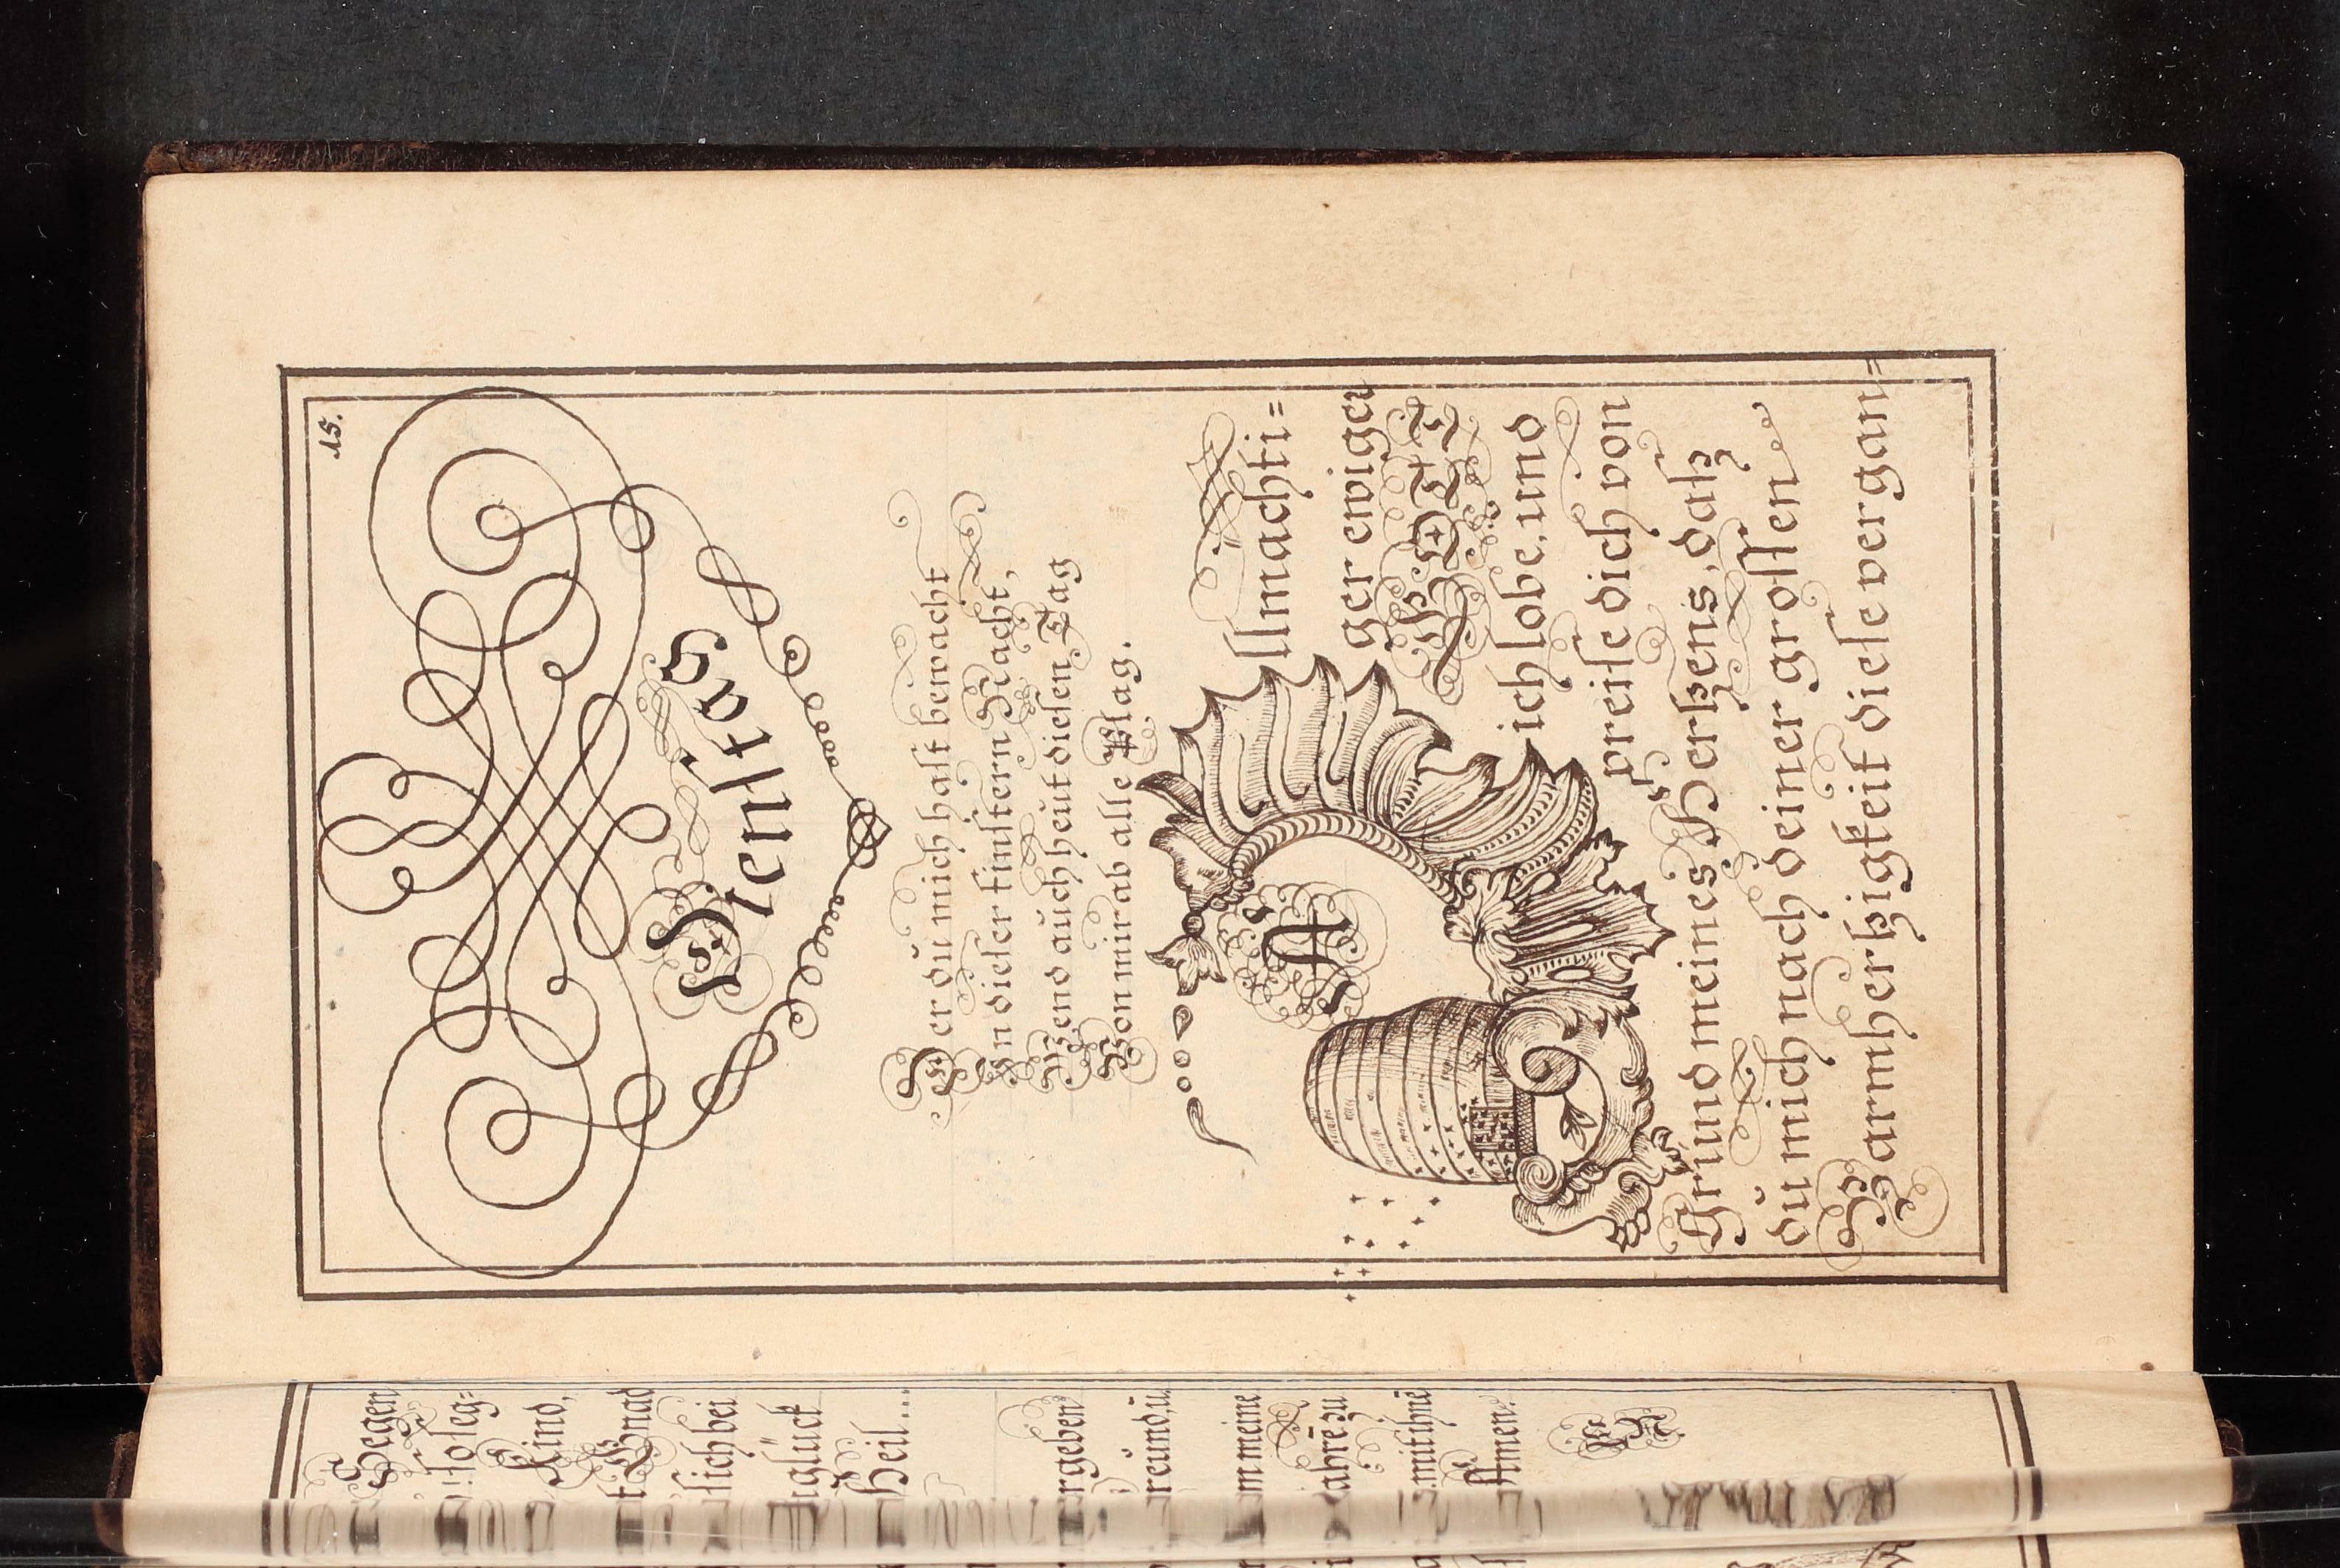 15.
Dienstag
Der dŭ mich hast bewacht
In dieser finstern Nacht,
Wend aŭch heŭt diesen Tag
Von mir ab alle Plag.
Allmächti=
ger ewiger
GOTT
ich lobe, ŭnd
preise dich von
Grŭnd meines Hertzens, datz
dŭ mich nach deiner grossen
Barmhertzigkeit diese vergan=
Segen
so leg=
Kind,
Gnad
slich bei
glück
Heil...
rgeben
reŭnd, ŭ
m meine
ahrē zŭ
mit ihnē
Amen.